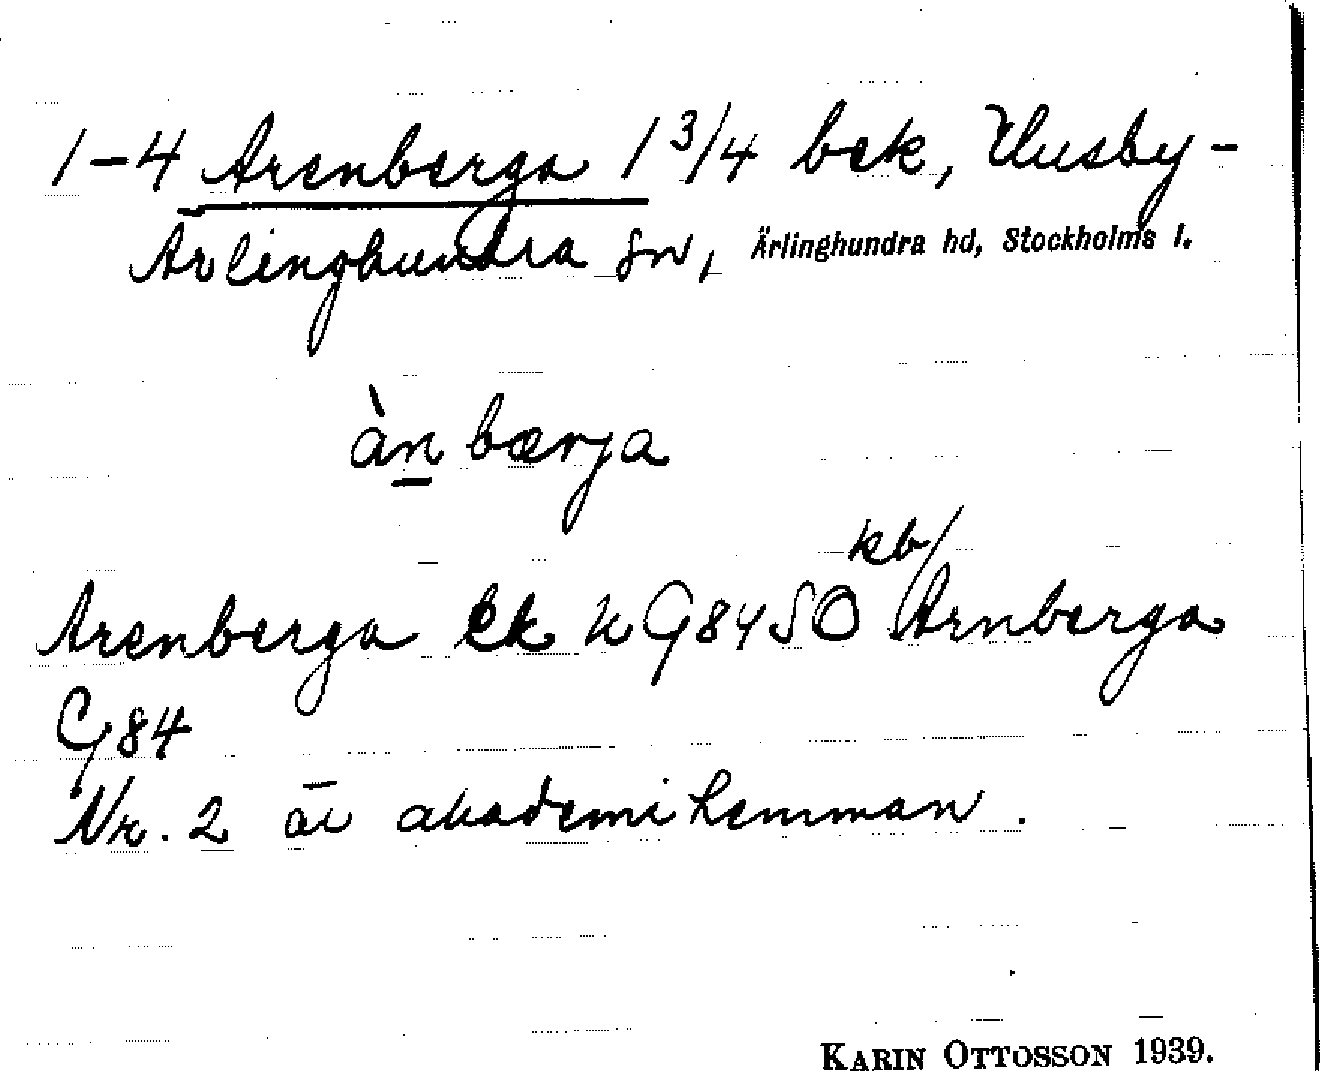 1-4 Arenberga 1 3/4 bek, Husby-
Ärlinghundra sn, Ärlinghundra hd, Stockholms l.
àn bærja
kb/
Arenberga Ek K G84 SO Arnberga
G84
Nr. 2 är akademihemman.
KARIN OTTOSSON 1939.